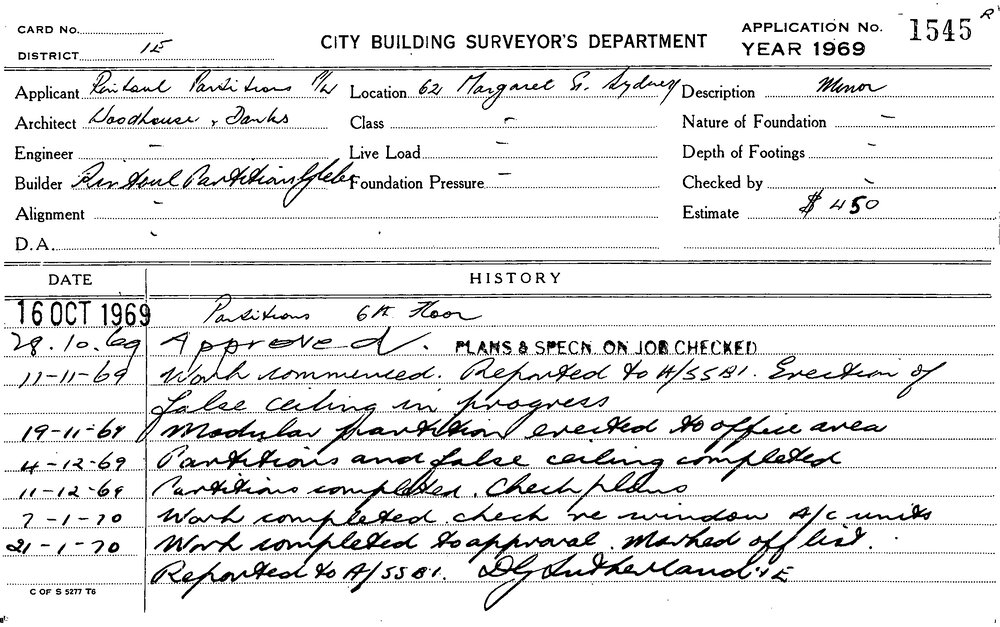 CARD No.
DISTRICT 1E
CITY BUILDING SURVEYOR'S DEPARTMENT
APPLICATION No. 1545 R
YEAR 1969
Applicant Rintoul Partitions P/L Location 62 Margaret St. Sydney Description Minor
Architect Woodhouse & Danks Class - Nature of Foundation -
Engineer - Live Load - Depth of Footings -
Builder Rintoul Partitions Glebe Foundation Pressure - Checked by -
Alignment - Estimate $450
D.A. -
DATE HISTORY
16 OCT 1969 Partitions 6th Floor
28.10.69 Approved. PLANS & SPECN. ON JOB CHECKED
11-11-69 Work commenced. Reported to A/SSBI. Erection of
false ceiling in progress
19-11-69 Modular partition erected to office area
4-12-69 Partitions and false ceiling completed
11-12-69 Partitions completed. Check plans
7-1-70 Work completed check re window A/C units
21-1-70 Work completed to approval. Marked off list.
Reported to A/SSBI. DG Sutherland 1E
C OF S 5277 T6